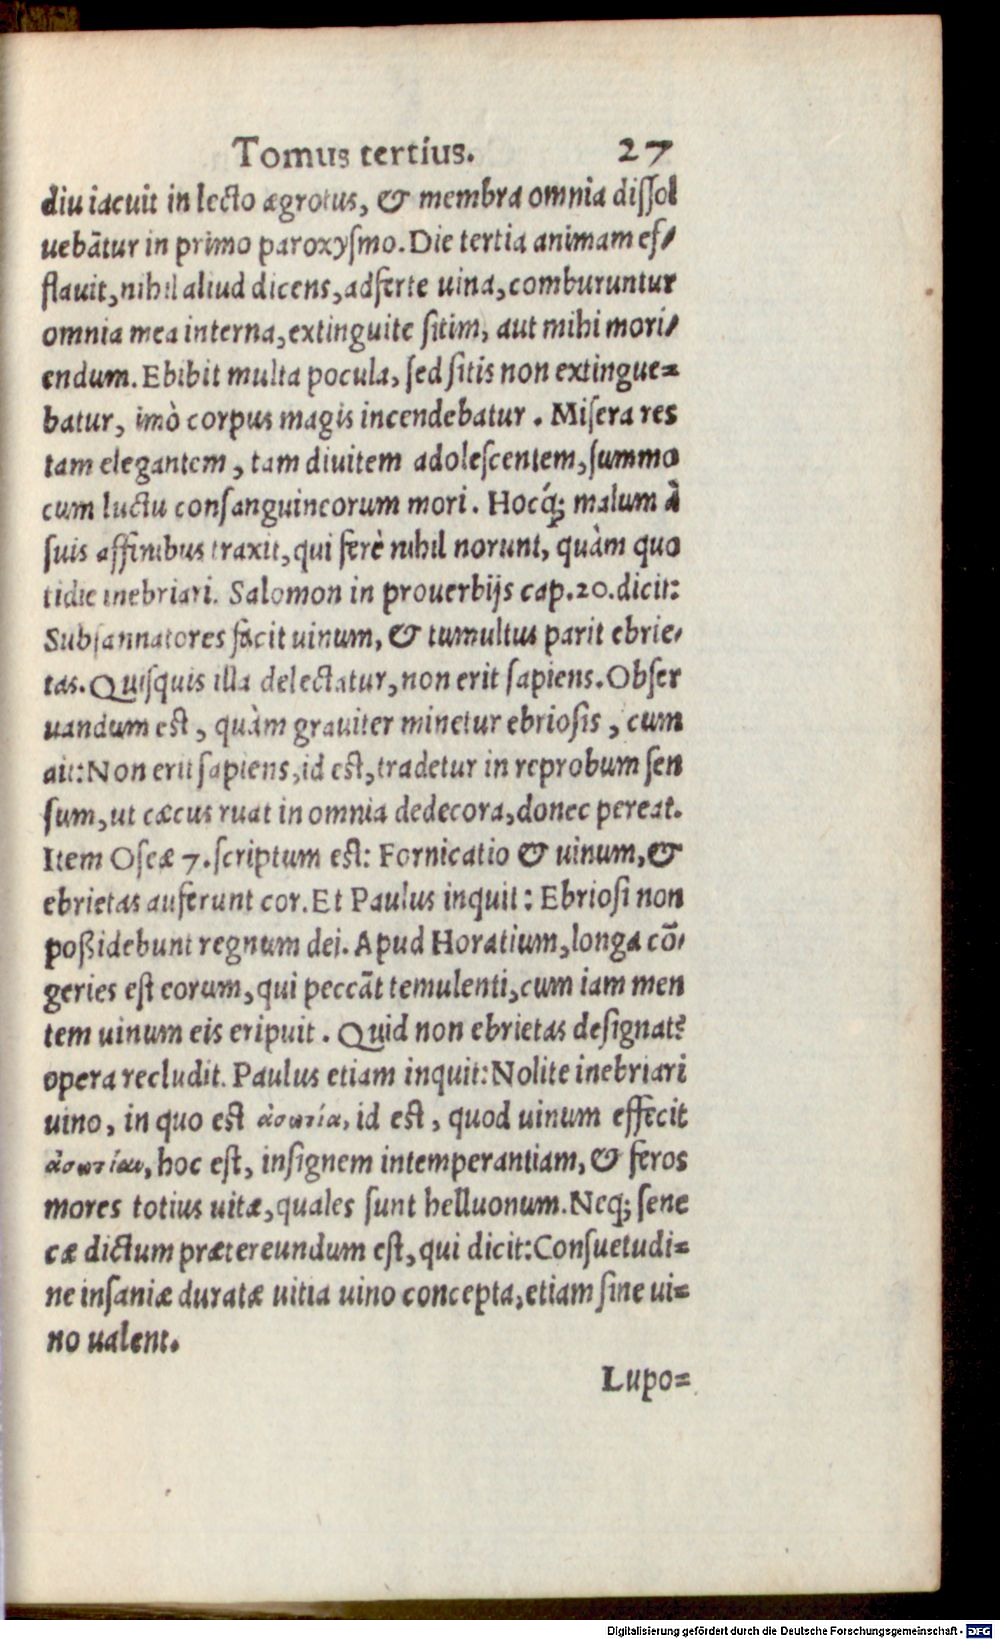 Tomus tertius. 27
diu iacuit in lecto ægrotus, & membra omnia dissol
uebãtur in primo paroxysmo. Die tertia animam ef-
flauit, nihil aliud dicens, adferte uina, comburuntur
omnia mea interna, extinguite sitim, aut mihi mori-
endum. Ebibit multa pocula, sed sitis non extingue-
batur, imò corpus magis incendebatur. Misera res
tam elegantem, tam diuitem adolescentem, summo
cum luctu consanguineorum mori. Hocq́; malum à
suis affinibus traxit, qui ferè nihil norunt, quàm quo
tidie inebriari. Salomon in prouerbijs cap. 20. dicit:
Subsannatores facit uinum, & tumultus parit ebrie-
tas. Quisquis illa delectatur, non erit sapiens. Obser
uandum est, quàm grauiter minetur ebriosis, cum
ait: Non erit sapiens, id est, tradetur in reprobum sen
sum, ut cæcus ruat in omnia dedecora, donec pereat.
Item Oseæ 7. scriptum est: Fornicatio & uinum, &
ebrietas auferunt cor. Et Paulus inquit: Ebriosi non
poßidebunt regnum dei. Apud Horatium, longa cõ-
geries est eorum, qui peccãt temulenti, cum iam men
tem uinum eis eripuit. Quid non ebrietas designat?
opera recludit. Paulus etiam inquit: Nolite inebriari
uino, in quo est ἀσωτία, id est, quod uinum effecit
ἀσωτίαν, hoc est, insignem intemperantiam, & feros
mores totius uitæ, quales sunt helluonum. Neq; sene
cæ dictum prætereundum est, qui dicit: Consuetudi-
ne insaniæ duratæ uitia uino concepta, etiam sine ui-
no ualent.
Lupo-
Digitalisierung gefördert durch die Deutsche Forschungsgemeinschaft - DFG